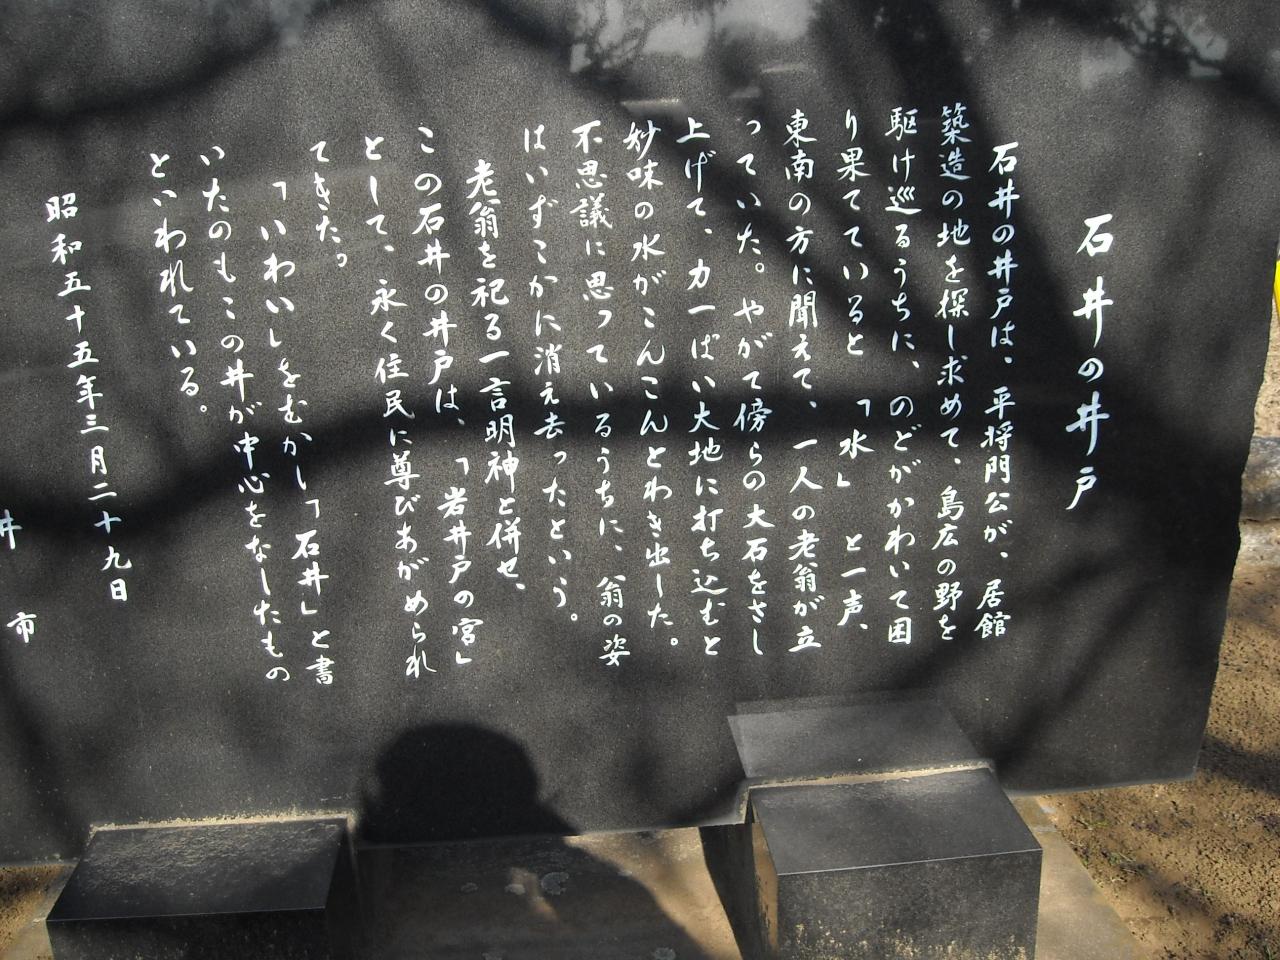 石井の井戸
石井の井戸は、平将門公が、居館
築造の地を探し求めて、島広の野を
駆け巡るうちに、のどがかわいて困
り果てていると「水」と一声、
東南の方に聞えて、一人の老翁が立
っていた。やがて傍らの大石をさし
上げて、力一ぱい大地に打ち込むと
妙味の水がこんこんとわき出した。
不思議に思っているうちに、翁の姿
はいずこかに消え去ったという。
老翁を祀る一言明神と併せ、
この石井の井戸は、「岩井戸の宮」
として、永く住民に尊びあがめられ
てきた。
「いわい」をむかし「石井」と書
いたのもこの井が中心をなしたもの
といわれている。
昭和五十五年三月二十九日
井市